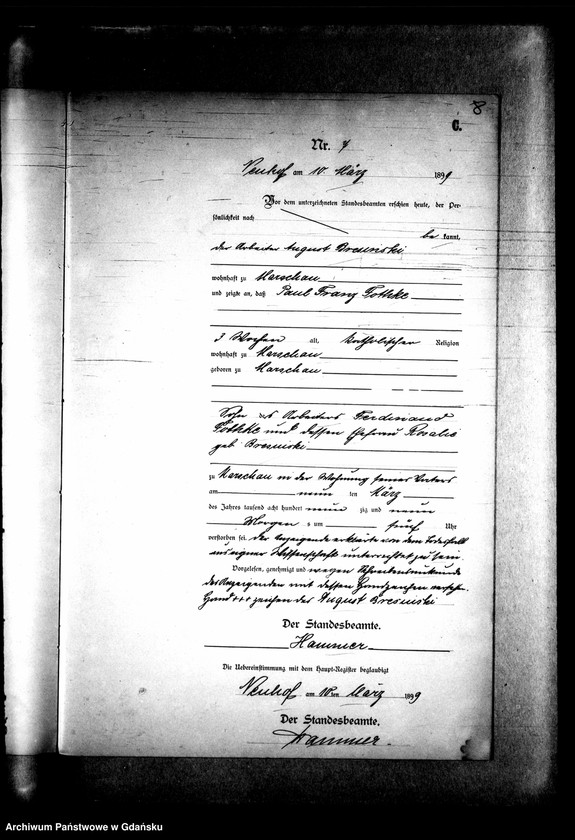 8
C.
Nr. 7
Neuhof am 10. März 1899
Vor dem unterzeichneten Standesbeamten erschien heute, der Per-
sönlichkeit nach
be kannt,
der Arbeiter August Bresinski
wohnhaft zu Marschau
und zeigte an, daß Paul Franz Pothke
3 Wochen alt, katholischer Religion
wohnhaft zu Marschau
geboren zu Marschau
Sohn des Arbeiters Ferdinand
Pothke und dessen Ehefrau Rosalie
geb. Bresinski
zu Marschau in der Wohnung seines Vaters
am neun ten März
des Jahres tausend acht hundert neun zig und neun
Morgen s um fünf Uhr
verstorben sei. Der Anzeigende erklärte von dem Todesfall
aus eigner Wissenschaft unterrichtet zu sein
Vorgelesen, genehmigt und wegen Schreibensunkunde
des Anzeigenden mit dessen Handzeichen versehn.
Hand +++ zeichen des August Bresinski
Der Standesbeamte.
Hammer
Die Uebereinstimmung mit dem Haupt-Register beglaubigt
Neuhof am 10ten März 1899
Der Standesbeamte.
Hammer.
Archiwum Państwowe w Gdańsku